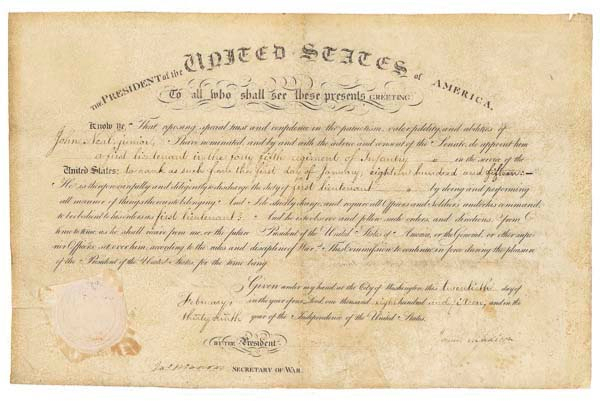 THE PRESIDENT of the UNITED STATES of AMERICA,
To all who shall see these presents GREETING
Know Ye, That reposing special trust and confidence in the patriotism, valor, fidelity, and abilities of
John Neal, junior, I have nominated, and by and with the advice and consent of the Senate, do appoint him
a first lieutenant in the forty fifth regiment of Infantry in the service of the
United States: to rank as such from the first day of January, eighteen hundred and fifteen:
He is therefore carefully and diligently to discharge the duty of first lieutenant by doing and performing
all manner of things thereunto belonging. And I do strictly charge, and require all Officers and Soldiers under his command,
to be obedient to his orders as first lieutenant: And he is to observe and follow such orders, and directions, from
time to time, as he shall receive from me, or the future President of the United States of America, or the General or other supe-
rior Officers set over him, according to the rules and discipline of War. This Commission to continue in force during the pleasure
of the President of the United States, for the time being.
Given under my hand, at the City of Washington, this twentieth day of
February, in the year of our Lord, one thousand eight hundred and fifteen, and in the
thirty ninth year of the Independence of the United States.
BY THE President
James Madison
Jas Monroe SECRETARY OF WAR.